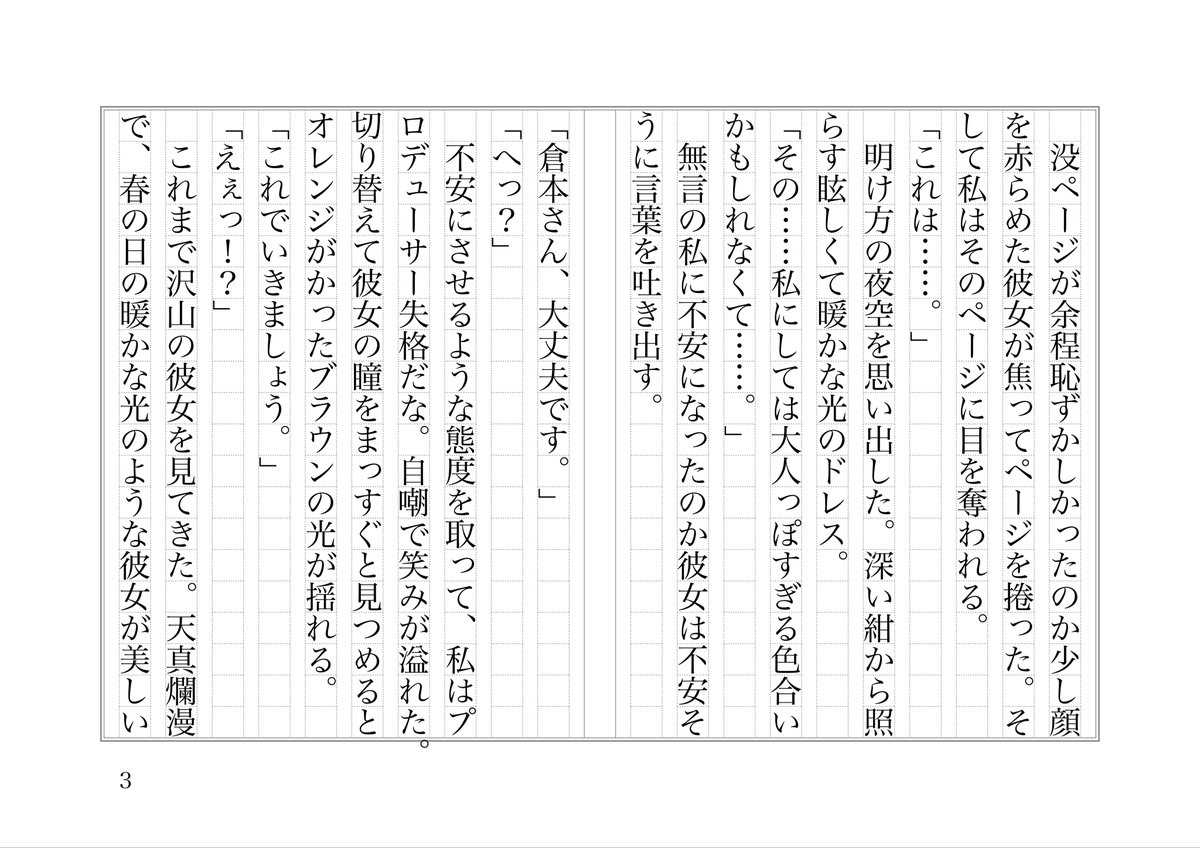 没ページが余程恥ずかしかったのか少し顔
を赤らめた彼女が焦ってページを捲った。そ
して私はそのページに目を奪われる。
「これは……。」
　明け方の夜空を思い出した。深い紺から照
らす眩しくて暖かな光のドレス。
「その……私にしては大人っぽすぎる色合い
かもしれなくて……。」
　無言の私に不安になったのか彼女は不安そ
うに言葉を吐き出す。
「倉本さん、大丈夫です。」
「へっ？」
　不安にさせるような態度を取って、私はプ
ロデューサー失格だな。自嘲で笑みが溢れた。
切り替えて彼女の瞳をまっすぐと見つめると
オレンジがかったブラウンの光が揺れる。
「これでいきましょう。」
「えぇっ！？」
　これまで沢山の彼女を見てきた。天真爛漫
で、春の日の暖かな光のような彼女が美しい
3